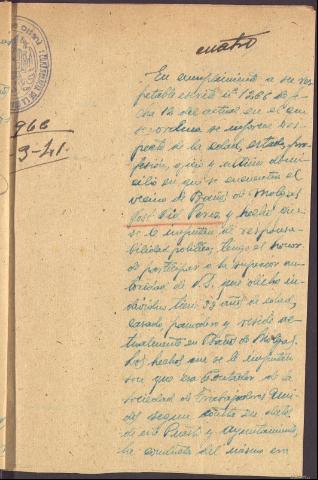 cuatro
En cumplimiento a su res-
petable escrito nº 1266 de fe-
cha 12 del actual en el que
se ordena se informe res-
pecto de la edad, estado, pro-
fesión, oficio y ultimo domi-
cilio en que se encuentra el
vecino de Baños de Molgas
José Cid Perez y hechos que
se le imputan de responsa-
bilidad politica, tengo el honor
de participar a la superior au-
toridad de V.S. que dicho in-
dividuo tiene 39 años de edad,
casado, panadero y reside ac-
tualmente en Baños de Molgas.
Los hechos que se le imputan
son que era Contador de la
sociedad de Trabajadores Uni-
dos segun consta en datos
de este Puesto y ayuntamiento,
la conducta del mismo en
966
-3-41.